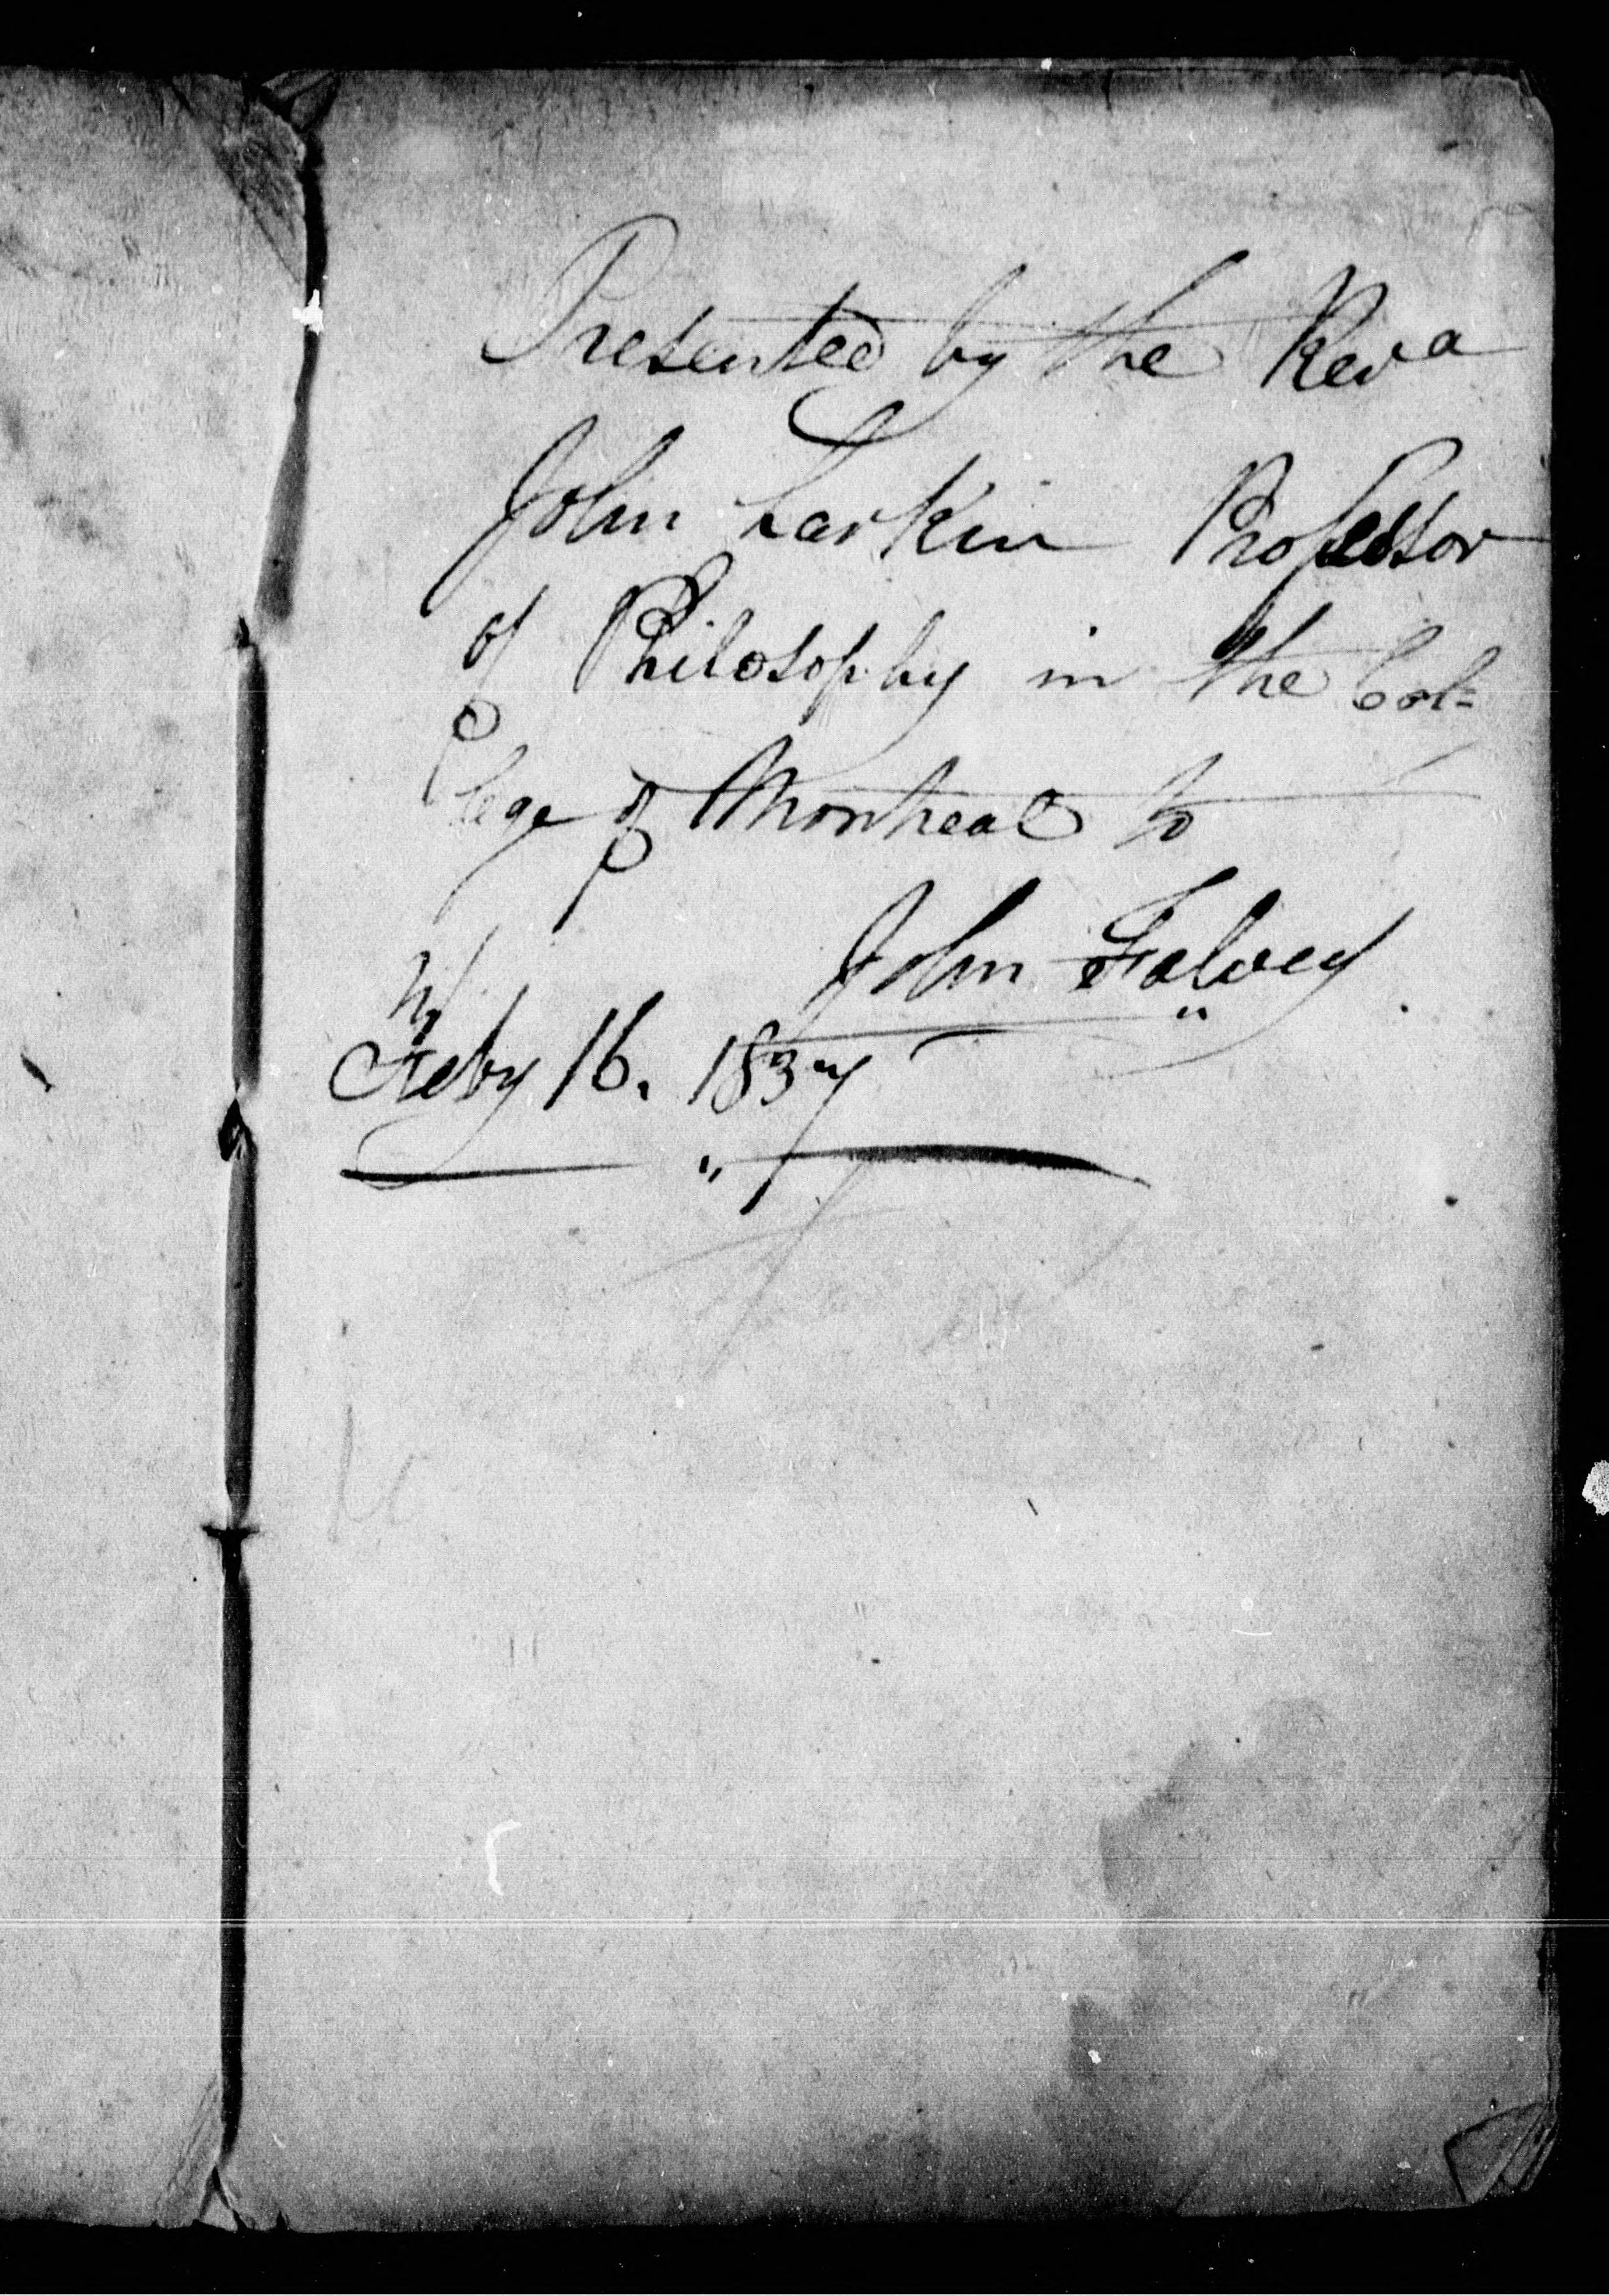 Presented by the Revd
John Larkin Professor
of Philosophy in the Col=
lege of Montreal to
John Falvey
Feby 16. 1837